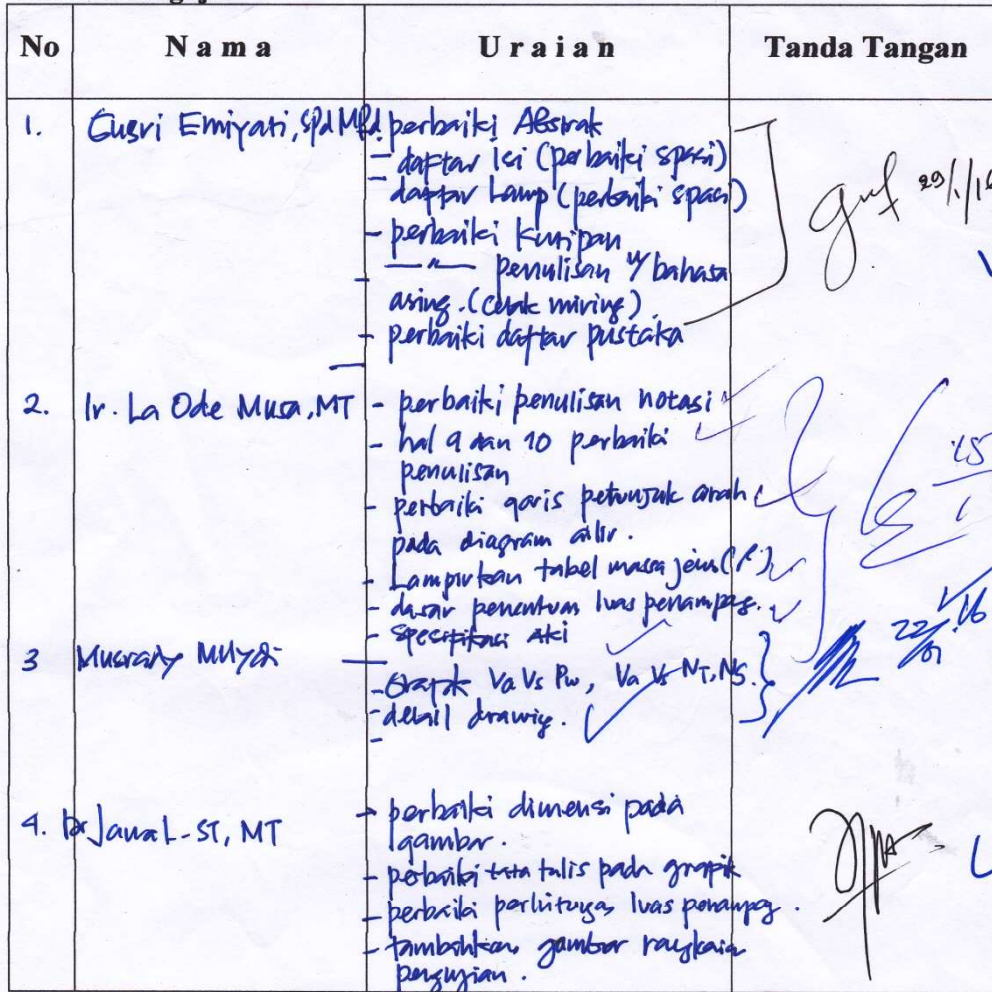 No Nama Uraian Tanda Tangan
1. Gusri Emiyati, SPd MPd. perbaiki Abstrak
- daftar Isi (perbaiki spasi)
daftar Lamp (perbaiki spasi)
29/1/16
- perbaiki Kutipan
— " — penulisan u/ bahasa
asing. (cetak miring)
- perbaiki daftar pustaka
2. Ir. La Ode Musa, MT - perbaiki penulisan notasi
- hal 9 dan 10 perbaiki
penulisan
- perbaiki garis petunjuk arah
pada diagram alir.
- Lampirkan tabel massa jenis (ρ)
- dasar penentuan luas penampag.
- spesifikasi aki
3 Musrady Mulyadi
- Grapik Va Vs Pw, Va Vs NT, NS.
- detail drawig.
-
4. Dr Jamal - ST, MT - perbaiki dimensi pada
gambar.
- perbaiki tata tulis pada grapik
- perbaiki perhitugan luas penampag.
- tambahkan gambar rangkaian
pengujian.